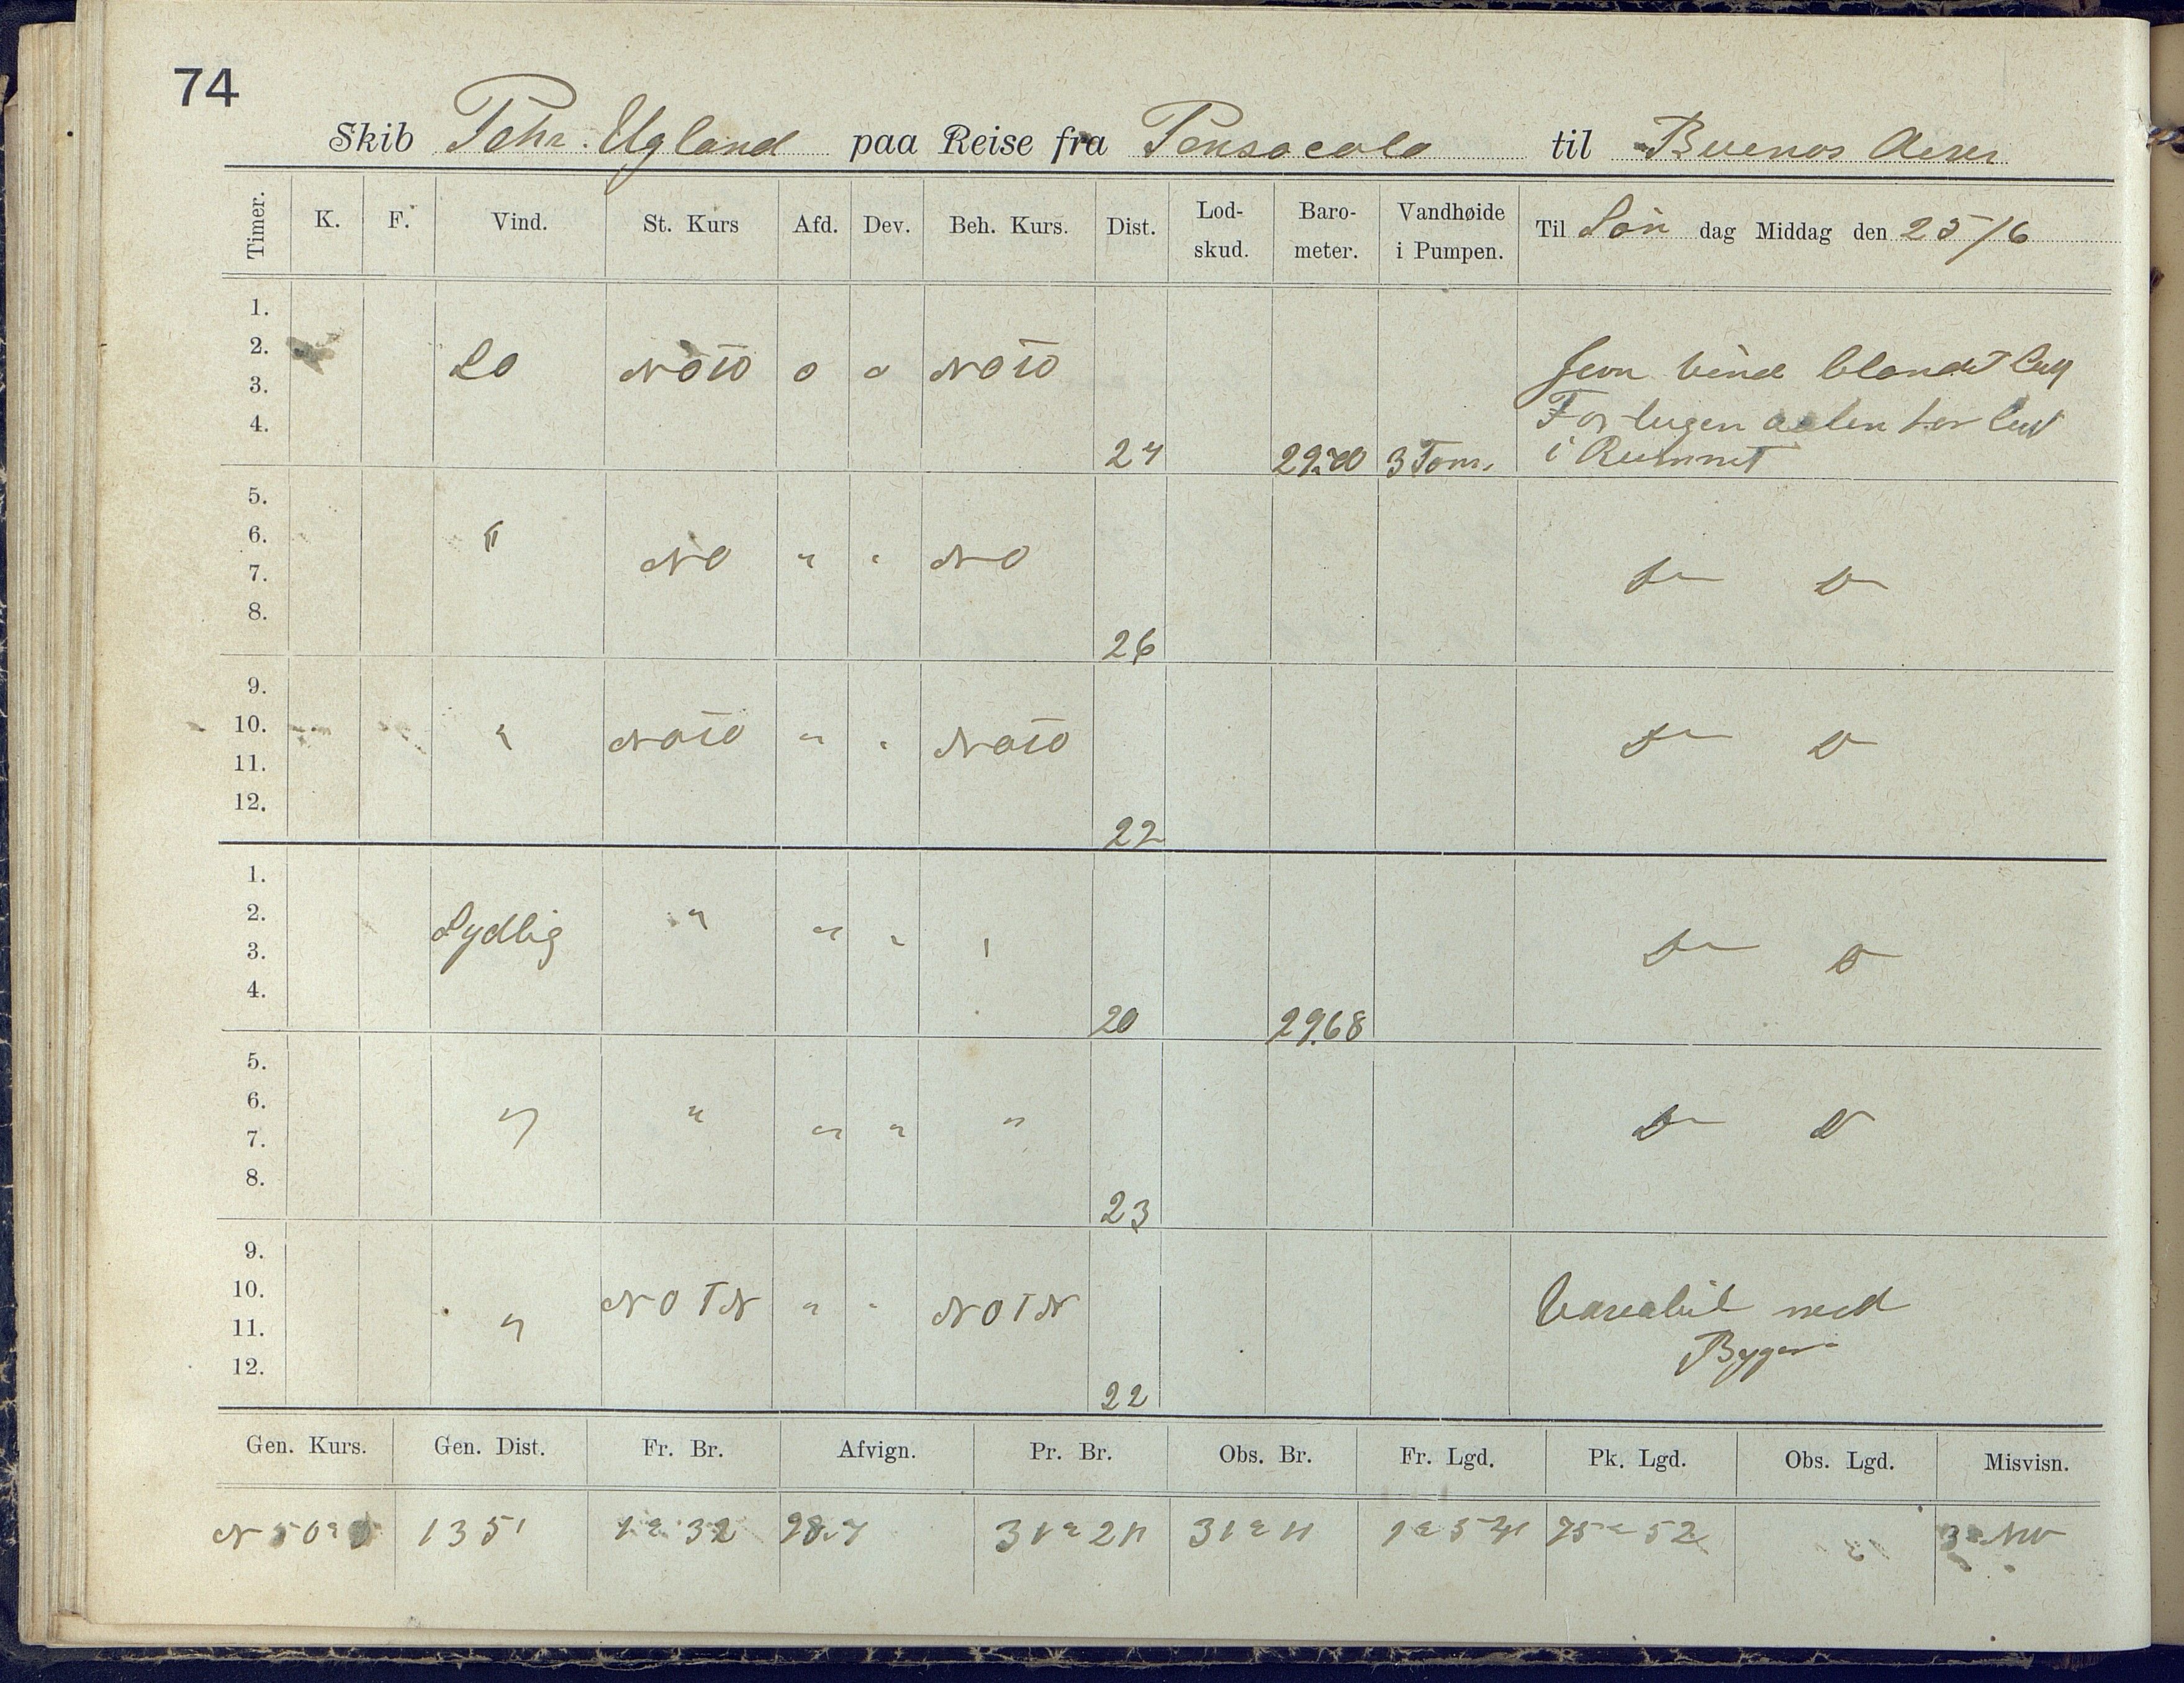 74
Skib Tehr. Ugland paa Reise fra Pensacola til Buenos Aeres
Timer. K. F. Vind. St. Kurs Afd. Dev. Beh. Kurs. Dist. Lod-skud. Baro-meter. Vandhøide i Pumpen. Til Søn dag Middag den 25/6
1.
2.
3. SO NOTO 0 0 NOTO Jevn Vind blandet Luft
4. 24 29.70 3 Tom. i Rummet
5.
6. "
7. NO " " NO Do Do
8. 26
9.
10. " NOTO " " NOTO Do Do
11.
12. 22
1.
2. Sydlig " " " "
3. Do Do
4. 20 29.68
5.
6.
7. " " " " " Do Do
8. 23
9.
10. NOTN " " NOTN Variabil med
11. " Byger
12. 22
Gen. Kurs. Gen. Dist. Fr. Br. Afvign. Pr. Br. Obs. Br. Fr. Lgd. Pk. Lgd. Obs. Lgd. Misvisn.
135' 1° 32 75° 52